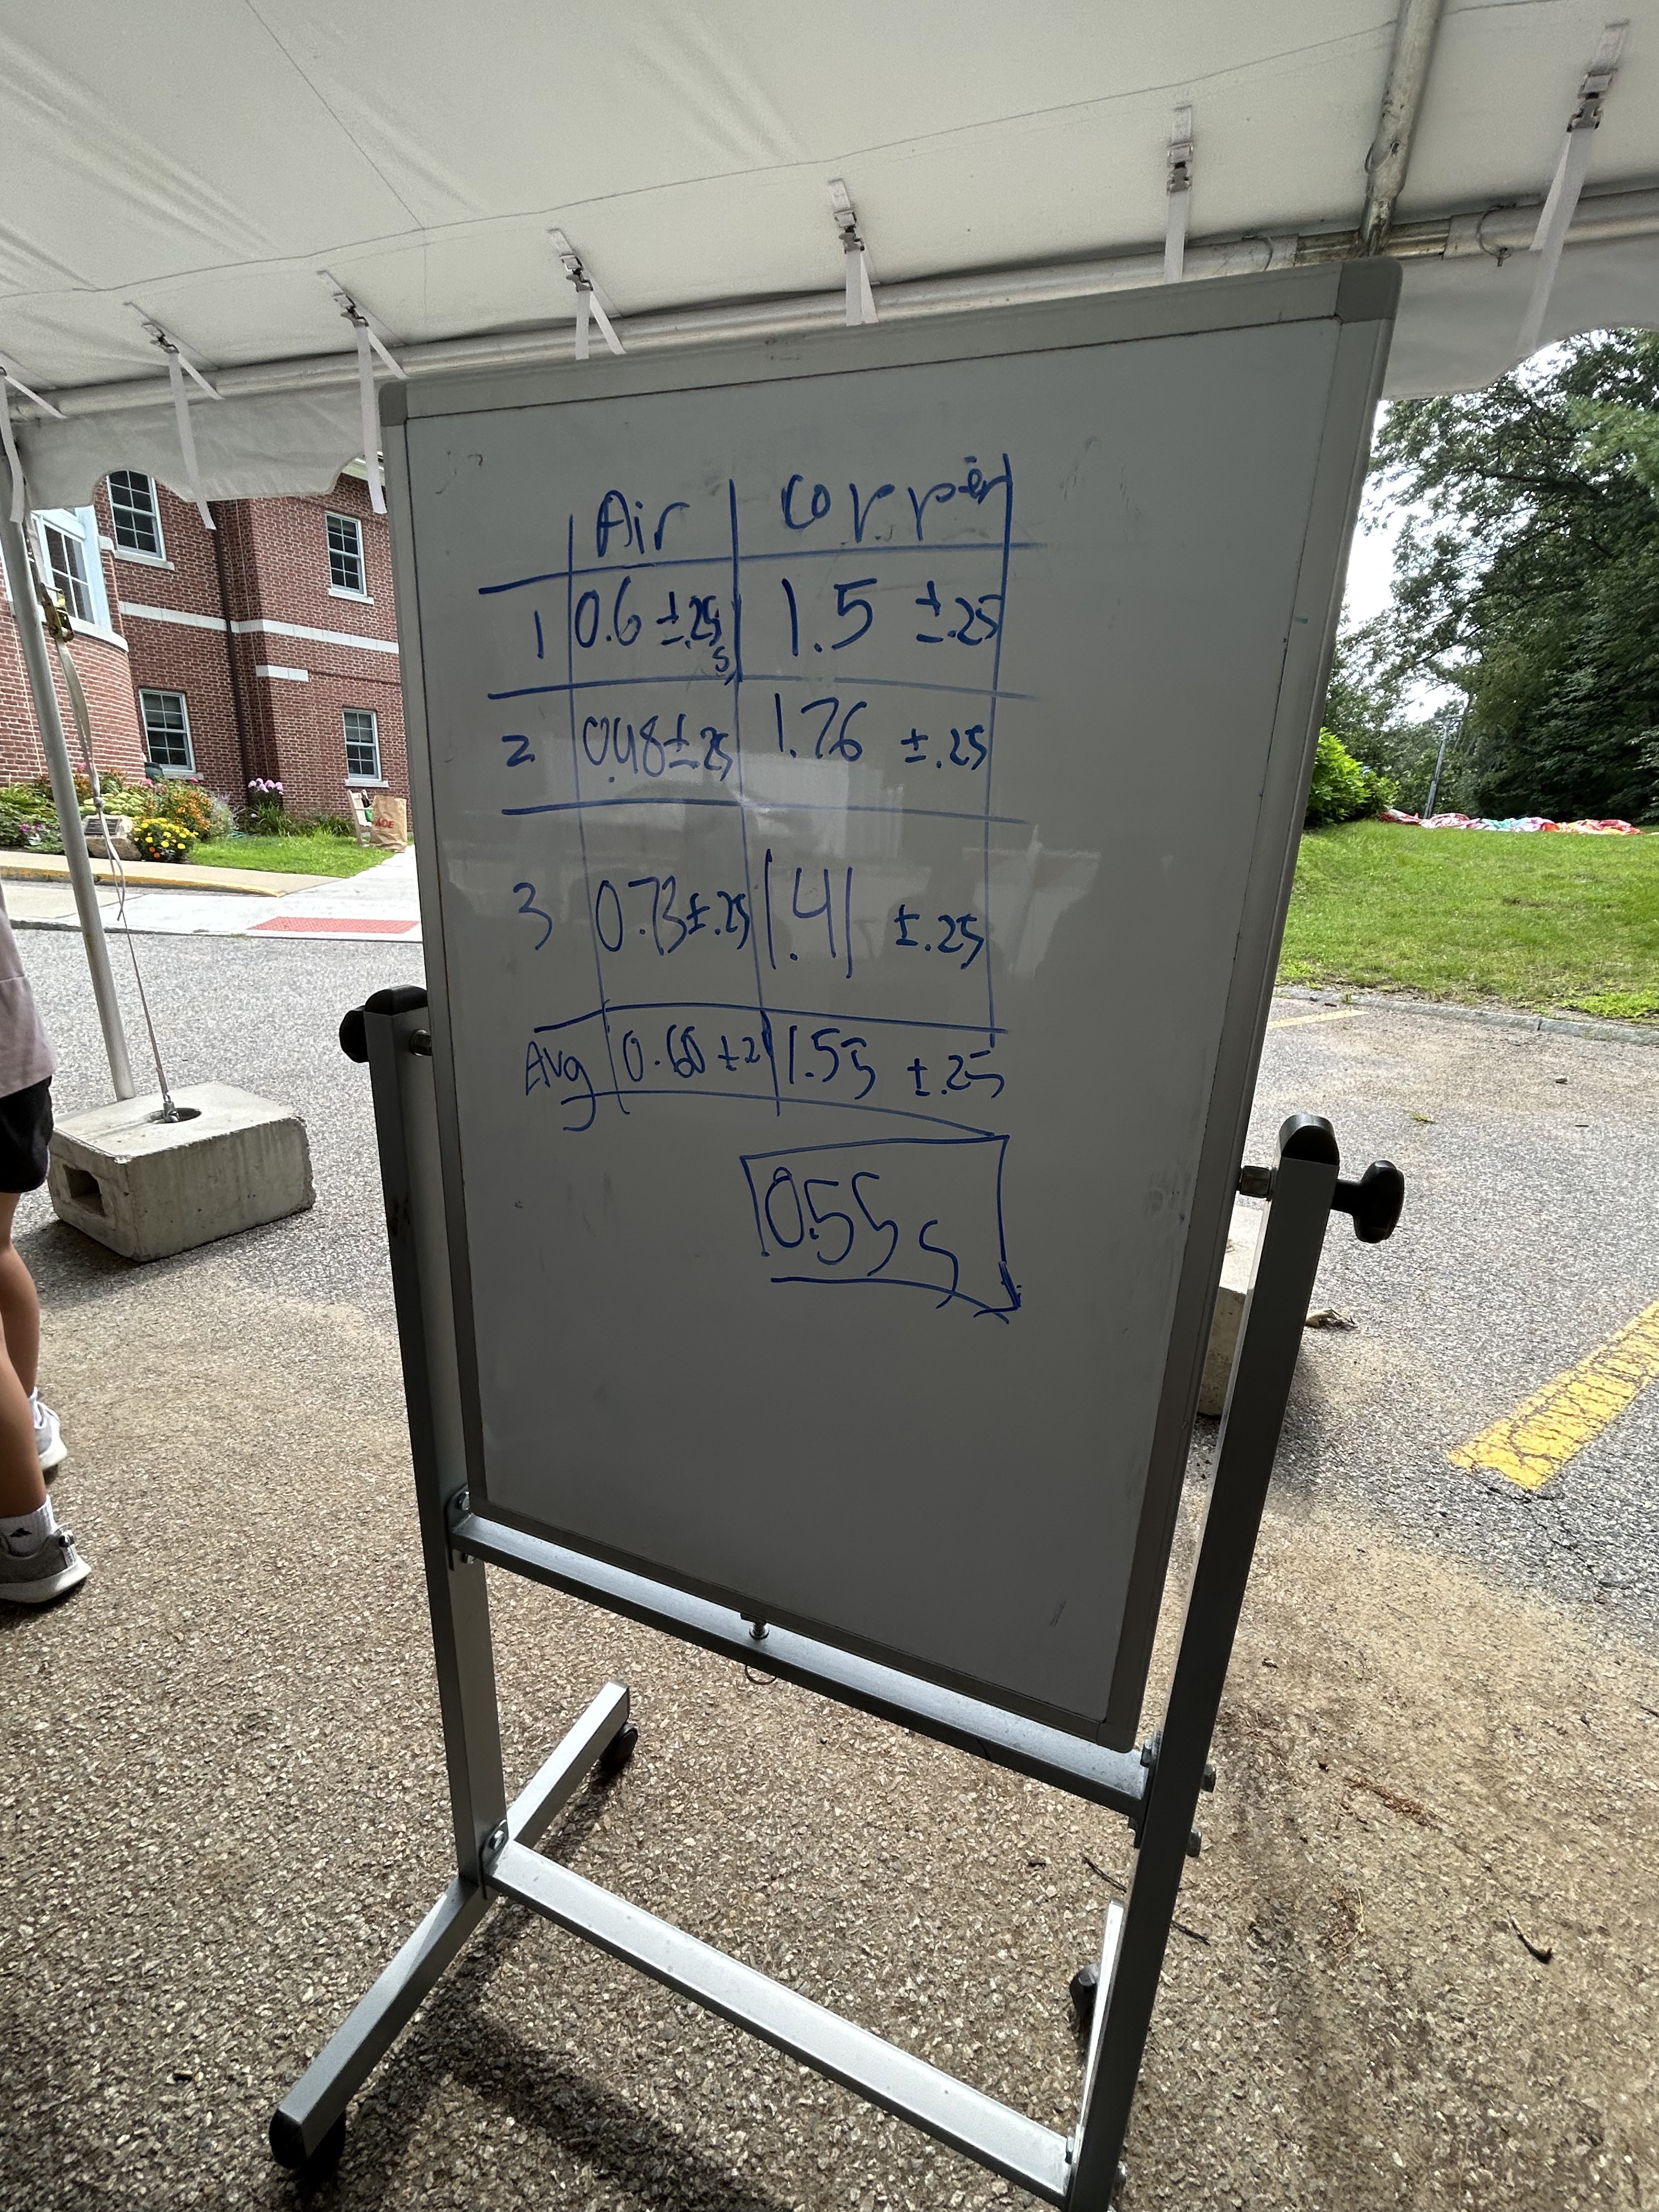 Air Copper
1 0.6 ±.25 s 1.5 ±.25
2 0.48±.25 1.76 ±.25
3 0.73±.25 1.41 ±.25
Avg 0.60 ±2 1.55 ±.25
0.55 s